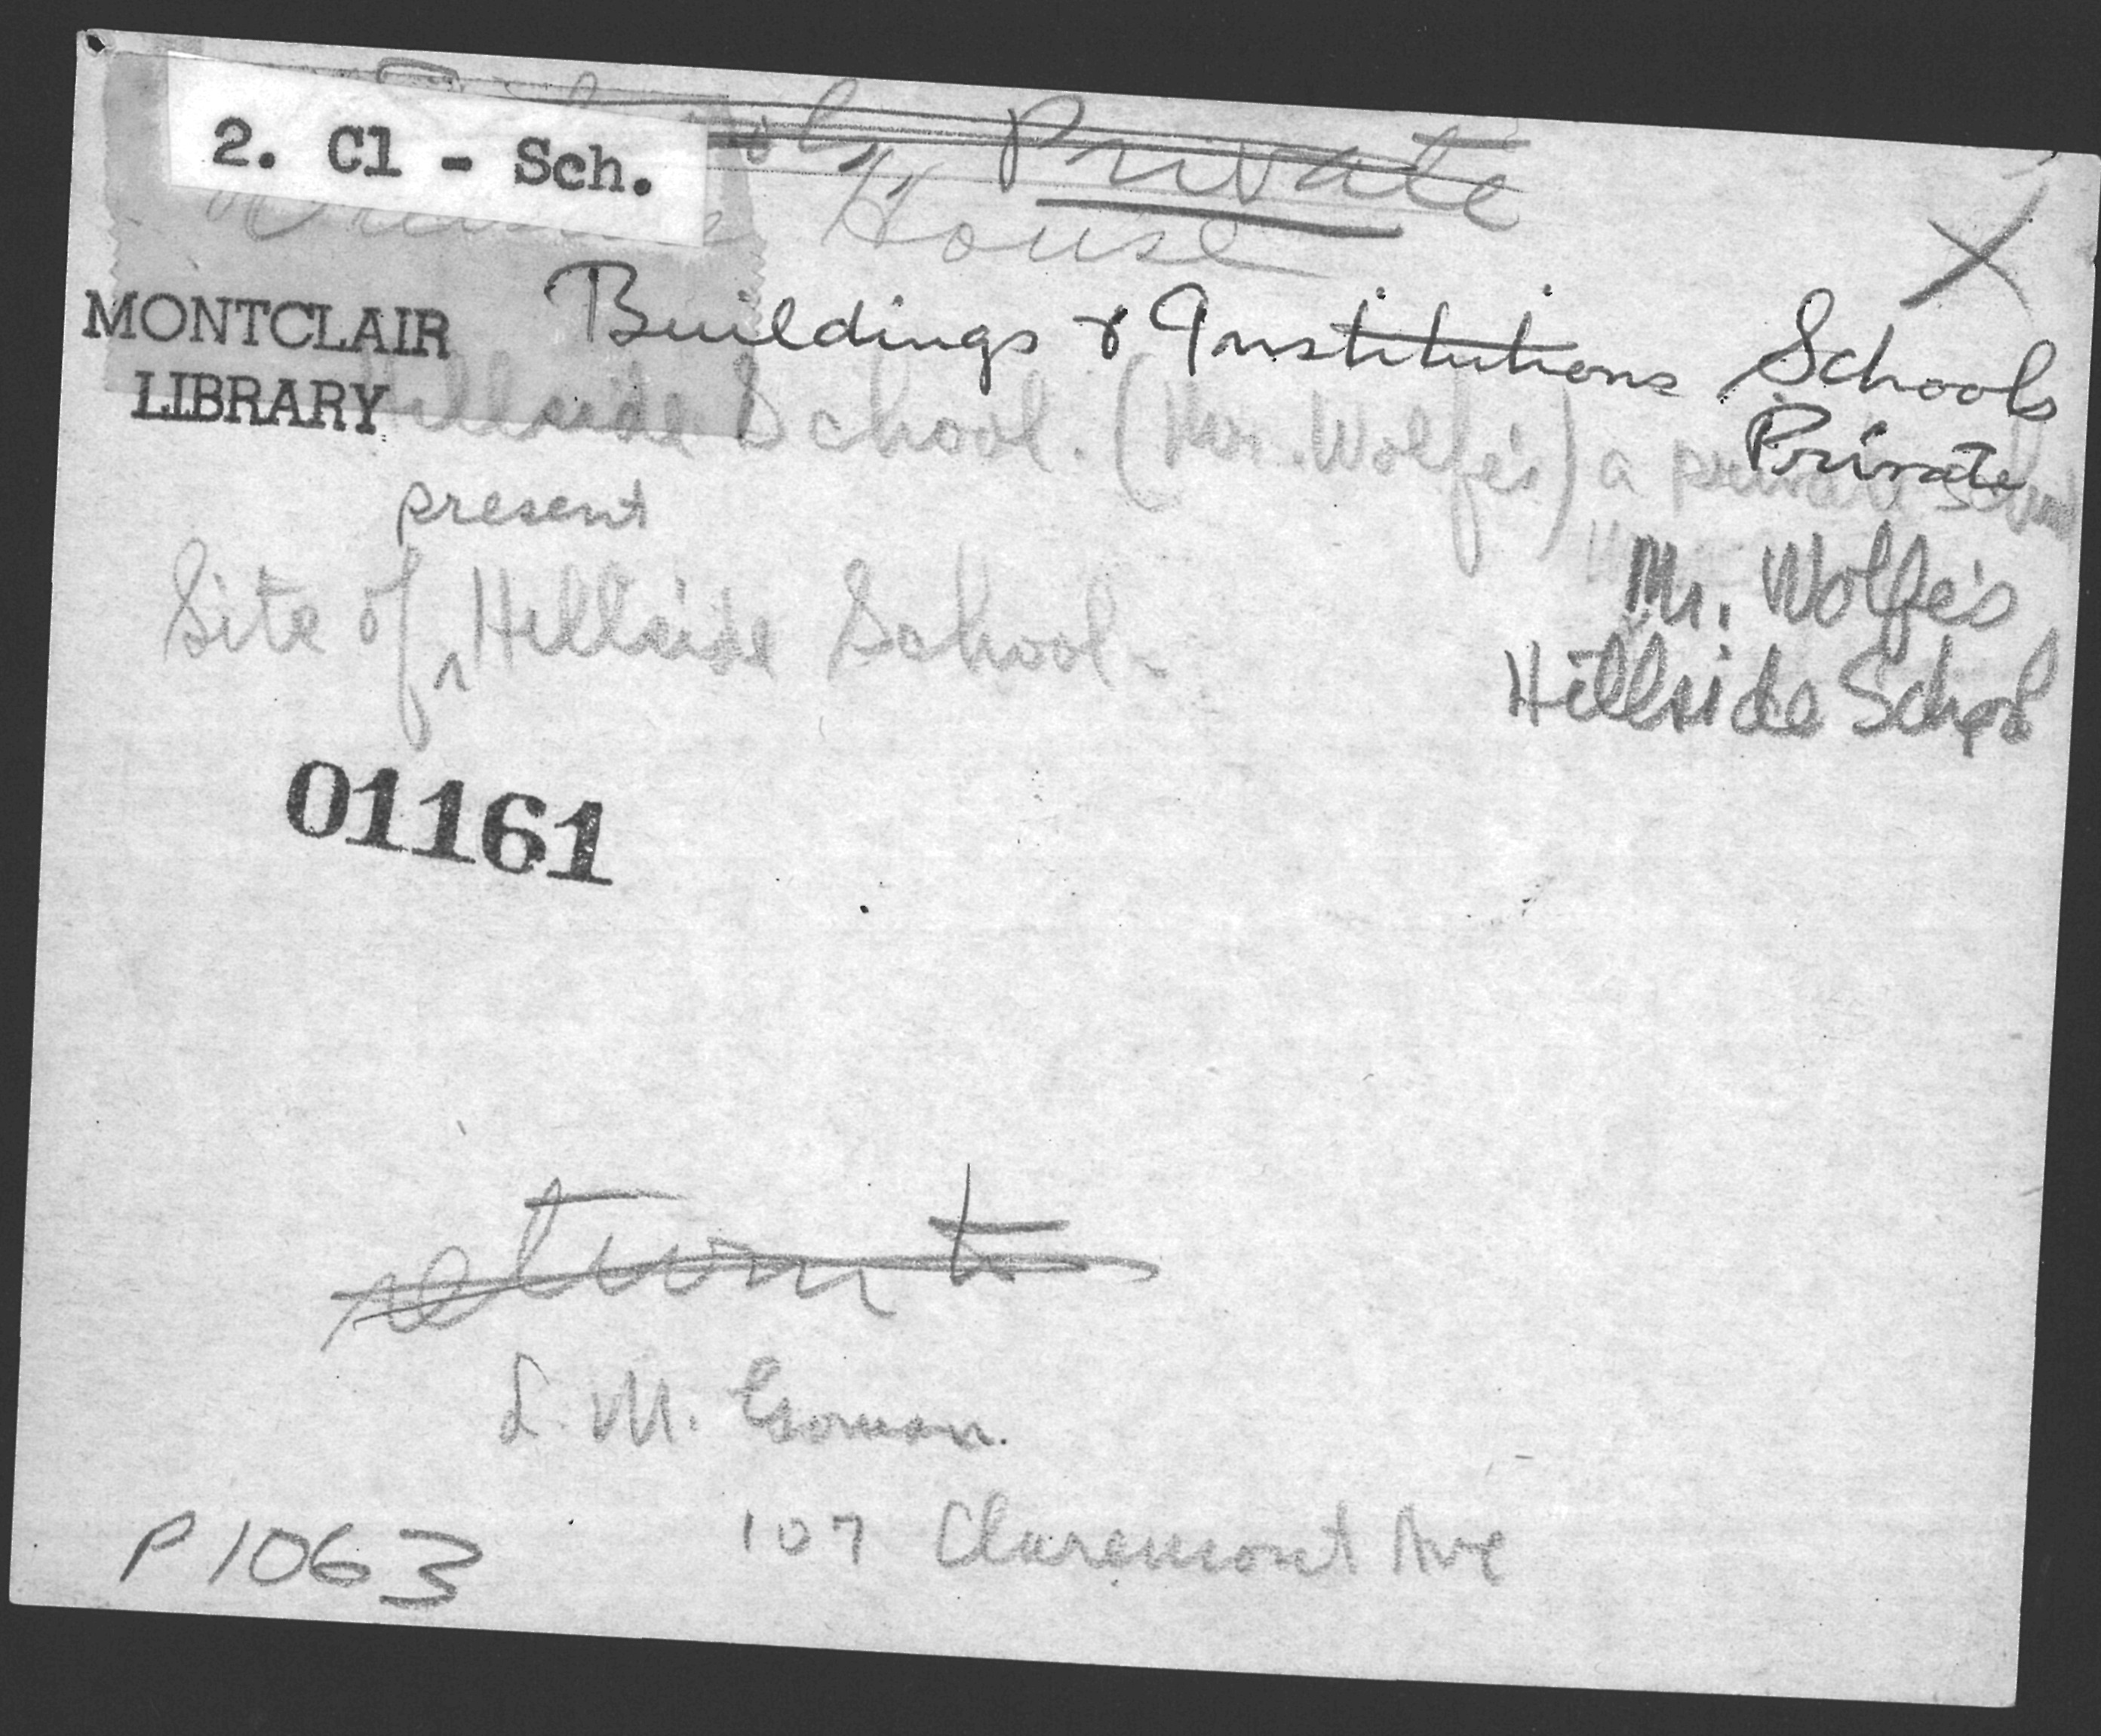 2. Cl - Sch.
Private
House
X
MONTCLAIR
LIBRARY
Buildings & Institutions Schools
Private
Hillside School. (Mr. Wolfe's) a private school
present
Site of ^ Hillside School-
Mr. Wolfe's
Hillside School
01161
return to
L. M.
107 Claremont Ave
P1063